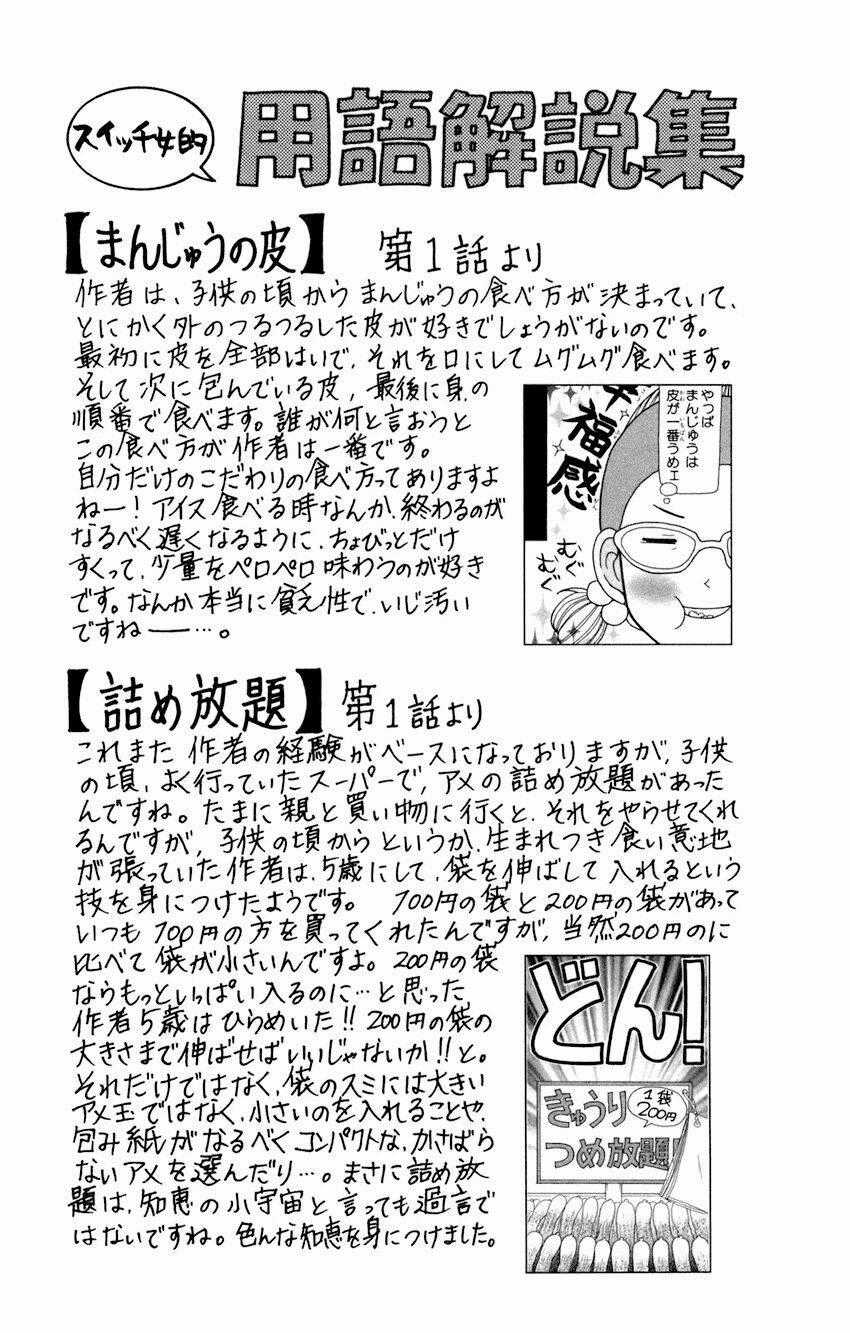 スイッチ女的
用語解説集
【まんじゅうの皮】 第1話より
作者は、子供の頃からまんじゅうの食べ方が決まっていて、
とにかく外のつるつるした皮が好きでしょうがないのです。
最初に皮を全部はいで、それを口にしてムグムグ食べます。
そして次に包んでいる皮、最後に身の
順番で食べます。誰が何と言おうと
この食べ方が作者は一番です。
自分だけのこだわりの食べ方ってありますよ
ねー!アイス食べる時なんか、終わるのが
なるべく遅くなるように、ちょびっとだけ
すくって、少量をペロペロ味わうのが好き
です。なんか本当に貧乏性で、いじ汚い
ですねー…。
やっぱ
まんじゅうは
皮が一番うめェ
福感
むぐ
むぐ
【詰め放題】 第1話より
これまた作者の経験がベースになっておりますが、子供
の頃、よく行っていたスーパーで、アメの詰め放題があった
んですね。たまに親と買い物に行くと、それをやらせてくれ
るんですが、子供の頃からというか、生まれつき食い意地
が張っていた作者は、5歳にして、袋を伸ばして入れるという
技を身につけたようです。 100円の袋と200円の袋があって
いつも100円の方を買ってくれたんですが、当然200円のに
比べて袋が小さいんですよ。200円の袋
ならもっといっぱい入るのに…と思った
作者5歳はひらめいた!!200円の袋の
大きさまで伸ばせばいいじゃないか!!と。
それだけではなく、袋のスミには大きい
アメ玉ではなく、小さいのを入れることや、
包み紙がなるべくコンパクトな、かさばら
ないアメを選んだり…。まさに詰め放
題は、知恵の小宇宙と言っても過言で
はないですね。色んな知恵を身につけました。
どん!
きゅうり
つめ放題!
1袋
200円